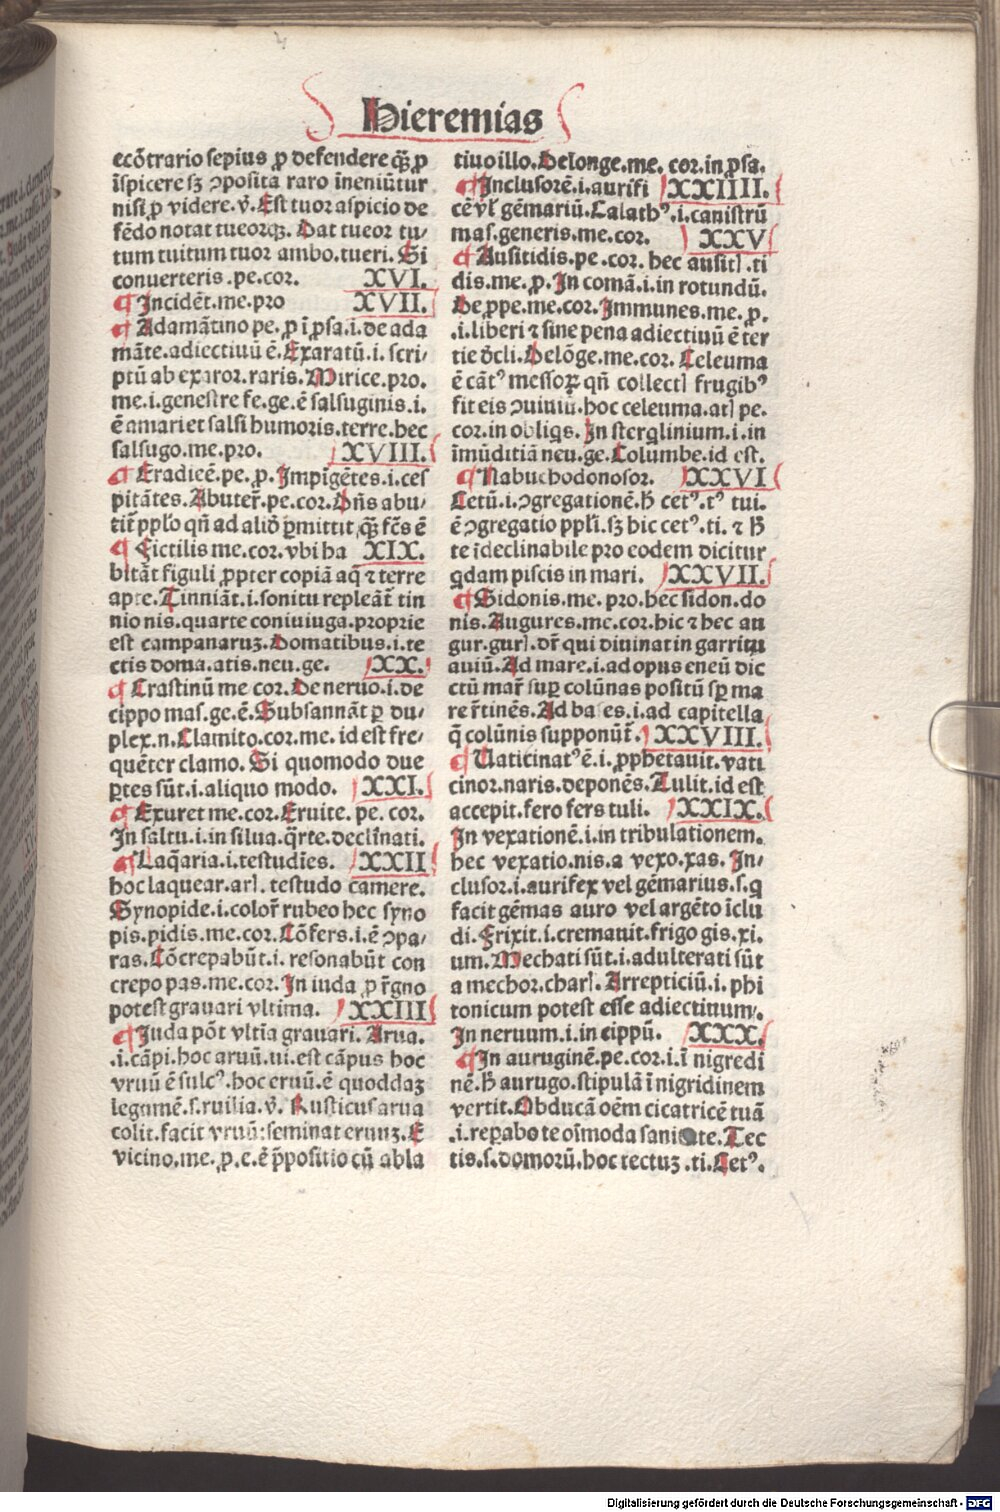 Hieremias
ecõtrario sepius ꝓ defendere qᷓꝫ ꝓ
ĩspicere sꝫ ꝯposita raro ĩneniũtur
nisi ꝓ videre. v̓. Est tuor aspicio de
fẽdo notat tueorqꝫ. Dat tueor tu/
tum tuitum tuor ambo.tueri. Si
conuerteris.pe.cor. XVI.
¶ Incidẽt.me.pro XVII.
¶ Adamãtino pe. ꝓ ĩ ꝓsa.i.de ada
mãte.adiectiuũ ẽ. Exaratũ.i.scri/
ptũ ab exaror.raris. Mirice.pro.
me.i.genestre fe.ge.ẽ salsuginis.i.
ẽ amari et salsi humoris.terre.hec
salsugo.me.pro. XVIII.
¶ Eradicẽ.pe.ꝓ. Impĩgẽtes.i.ces
pitãtes. Abuter̃.pe.cor. Dñs abu/
tit̃ pplo qñ ad aliđ ꝑmittit qᷓꝫ fc̃s ẽ
¶ Fictilis me.cor.vbi ha XIX.
bitãt figuli ꝓpter copiã aq̃ ⁊ terre
apte. Tinniãt.i.sonitu repleãt̃ tin
nio nis.quarte coniuiuga.proprie
est campanaruꝫ. Domatibus.i.te
ctis doma.atis.neu.ge. XX.
¶ Crastinũ me cor. De neruo.i.de
cippo mas.ge.ẽ. Subsannãt ꝑ du/
plex.n. Clamito.cor.me. id est fre/
quẽter clamo. Si quomodo due
ꝑtes sũt.i.aliquo modo. XXI.
¶ Exuret me.cor. Eruite. pe. cor.
In saltu.i.in silua.q̃rte.declĩnati.
¶ Laq̃aria.i.testudĩes. XXII
hoc laquear.arꝭ. testudo camere.
Synopide.i.color̃ rubeo hec syno
pis.pidis.me.cor. Cõfers.i.ẽ ꝯpa/
ras. Cõcrepabũt.i. resonabũt con
crepo pas.me.cor. In iuda ꝓ r̃gno
potest grauari vltima. XXIII
¶ Juda põt vltĩa grauari. Arua.
.i.cãpi.hoc aruũ.ui.est cãpus hoc
vruũ ẽ sulcꝰ.hoc eruũ.ẽ quoddaꝫ
legumẽ.s.ruilia.v̓. Rusticus arua
colit.facit vruũ:seminat eruuꝫ. E
vicino.me.ꝓ.e.ẽ p̃positio cũ abla
tiuo illo. Delonge.me. cor.in ꝓsa.
¶ Inclusorẽ.i.aurifi XXIIII.
cẽ vꝉ gẽmariũ. Calathꝰ.i.canistrũ
mas.generis.me.cor. XXV
¶ Ausitidis.pe.cor. hec ausitꝭ.ti
dis.me.ꝓ. In comã.i.in rotundũ.
De ꝓpe.me.cor. Immunes.me.ꝓ.
.i.liberi ⁊ sine pena adiectiuũ ẽ ter
tie đcli. Delõge.me.cor. Celeuma
ẽ cãtꝰ messoꝝ qñ collectꝭ frugibꝰ
fit eis ꝯuiuiũ.hoc celeuma.atꝭ pe.
cor.in obliqs. In sterqlinium.i.in
ĩmũditiã neu.ge. Columbe.id est.
¶ Nabuchodonosor. XXVI
Cetũ.i.ꝯgregationẽ.ħ cetꝰ.tꝰ tui.
ẽ ꝯgregatio ppli.sꝫ hic cetꝰ.ti. ⁊ ħ
te ĩdeclinabile pro eodem dicitur
qdam piscis in mari. XXVII.
¶ Sidonis.me. pro.hec sidon.do
nis. Augures.me.cor.hic ⁊ hec au
gur.gurꝭ. dr̃ qui diuinat in garritu
auiũ. Ad mare.i.ad opus eneũ dic
ctũ mar̃ suꝑ colũnas positũ sꝑ ma
re r̃tinẽs. Ad bases.i.ad capitella
q̃ colũnis supponũt̃. XXVIII.
¶ Uaticinatꝰ ẽ.i.ꝓphetauit.vati
cinor.naris.deponẽs. Tulit.id est
accepit.fero fers tuli. XXIX.
In vexationẽ.i.in tribulationem.
hec vexatio.nis.a vexo.xas. In/
clusor.i.aurifex vel gẽmarius.s.q
facit gẽmas auro vel argẽto ĩclu
di. Frixit.i.cremauit.frigo gis.xi.
um. Mechati sũt.i.adulterati sũt
a mechor.charꝭ. Arrepticiũ.i.phi
tonicum potest esse adiectiuum.
In neruum.i.in cippũ. XXX.
¶ In auruginẽ.pe.cor.i.ĩ nigredi
nẽ.ħ aurugo.stipulã ĩ nigridinem
vertit. Obducã oẽm cicatricẽ tuã
.i.reꝑabo te oĩmoda sanitate. Tec
tis.s.domorũ.hoc tectuꝫ.ti. Cetꝰ.
Digitalisierung gefördert durch die Deutsche Forschungsgemeinschaft - DFG